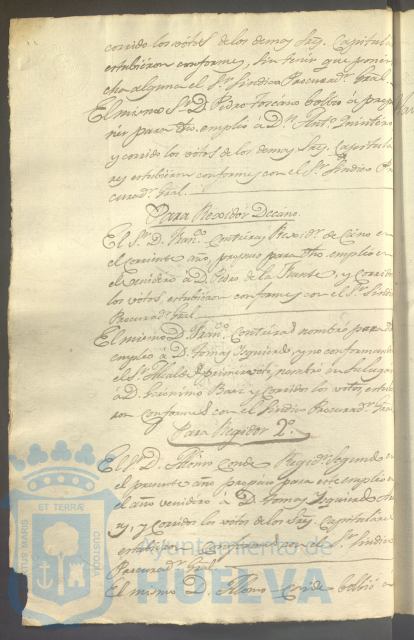 corrido los votos de los demas Sres. Capitula
estubieron conformes, sin tener que poner
cosa alguna el Sr. Sindico Procurador. Gral.
El mismo Sr. D. Pedro bolbio á propo
ner para dho. emplio á Dn. Anto. Quintero
y corrido los votos de los demas Sres. Capitula
res estubieron conformes con el Sr. Sindico Pro
curador. Gral.
Para Rexidor Decano.
El Sr. D. Franco. Contreras Rexidor. de Cano en
el corriente año, propuso para dho. emplio en
el venidero á D. Pedro de la Fuente, y corrido
los votos, estubieron conformes con el Sr. Sindico
Procurador. Gral.
El mismo D. Franco. Contreras nombró para dho
emplio á D. Tomas Izquierdo, y no conformando
el Sr. Alcalde de primer voto, nombró en su lugar
á D. Gerónimo y corridos los votos, estubie
ron conformes con el Sr. Sindico Procurador. Gral.
Para Regidor 2º.
El Sr. D. Alonso Conde Regidor. Segundo en
el presente año propuso para este emplio en
el año venidero á D. Tomas Izquierdo
y corrido los votos de los Sres. Capitulares
estubieron conformes con el Sr. Sindico
Procurador. Gral.
El mismo D. Alonso Conde bolbió á
ET TERRÆ
CUSTODIA
TUS MARIS
Ayuntamiento de
HUELVA